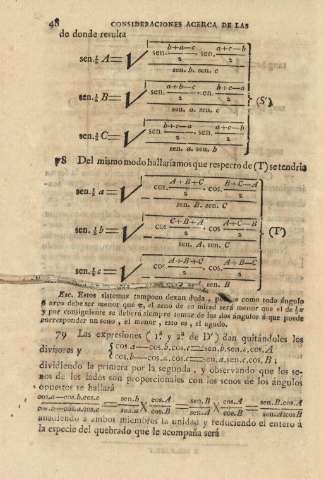 48 CONSIDERACIONES ACERCA DE LAS
de donde resulta
sen.½ A=√ sen. b+a—c/2 . sen. a+c—b/2 / sen. b. sen. c
sen.½ B=√ a+b—c/2 . b+c—a/2 / sen. a. sen. c
sen.½ C=√ sen. b+c—a/2 . sen. a+c—b/2 / sen. a. sen. b
(S')
78 Del mismo modo hallaríamos que respecto de (T) se tendria
sen.½ a=√ cos. A+B+C/2 . cos. B+C—A/2 / sen. B. sen. C
sen.½ b=√ cos. C+B+A/2 . cos. A+C—B/2 / sen. A. sen. C
sen.½ c=√ cos. A+B+C/2 . cos. A+B—C/2 / sen. B
(T')
Esc. Estos sistemas tampoco dexan duda, como todo ángulo
ó arco debe ser menor que el arco de su mitad será menor que el de
y por consiguiente se deberá siempre tomar de los dos ángulos á que puede
corresponder un seno, el menor, esto es, el agudo.
79 Las expresiones (1ª y 2ª de D') dan quitándoles los
divisores y {cos.a—cos.b.cos.c=sen.b.sen.c.cos.A
cos.b—cos.a.cos.c=sen.a.sen.c.cos.B;
dividiendo la primera por la segunda, y observando que los senos
de los lados son proporcionales con los senos de los ángulos
opuestos se hallará
cos.a—cos.b.cos.c/cos.b—cos.a.cos.c = sen.b/sen.a × cos.A/cos.B = sen.B/sen.A × cos.A/cos.B = sen.B.cos.A/sen.A.cosB
añadiendo á ambos miembros la unidad y reduciendo el entero á
la especie del quebrado que le acompaña será